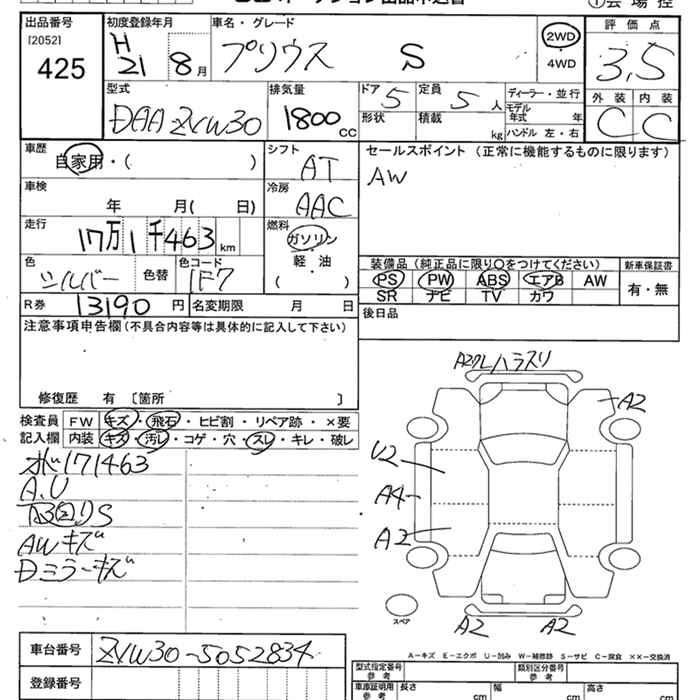 ①会場控
出品番号 初度登録年月 車名・グレード 2WD 評価点
[2052] H
425 21 8月 プリウス S ・ 4WD 3,5
型式 排気量 ドア 定員 ディーラー・並行 外装 内装
DAA ZVW30 1800 CC 5 5人 モデル年式 年 C C
形状 積載 kg ハンドル 左・右
車歴 シフト セールスポイント (正常に機能するものに限ります)
自家用・( ) AT AW
車検 冷房
年 月( 日) AAC
走行 燃料
17万1千463 km ガソリン
色 色替 色コード 軽・油 装備品 (純正品に限り○をつけてください) 新車保証書
シルバー 1F7 ( ) PS PW ABS エアB AW 有・無
R券 13190円 名変期限 月 日 SR ナビ TV カワ
注意事項申告欄 (不具合内容等は具体的に記入して下さい) 後日品
修復歴 有 〔箇所 〕
検査員 FW キズ・飛石・ヒビ割・リペア跡・×要
記入欄 内装 キズ・汚レ・コゲ・穴・スレ・キレ・破レ
171463
A.U
AWキズ
Dミラーキズ
ハラスリ
A2
U2
A4
A2
スペア
A2 A2
A-キズ E-エクボ U-凹み W-補修跡 S-サビ C-腐食 ××-交換済
車台番号 ZVW30-5052834
型式指定番号 参考 類別区分番号 参考
登録番号
車庫証明用 参考 長さ cm 幅 cm 高さ cm